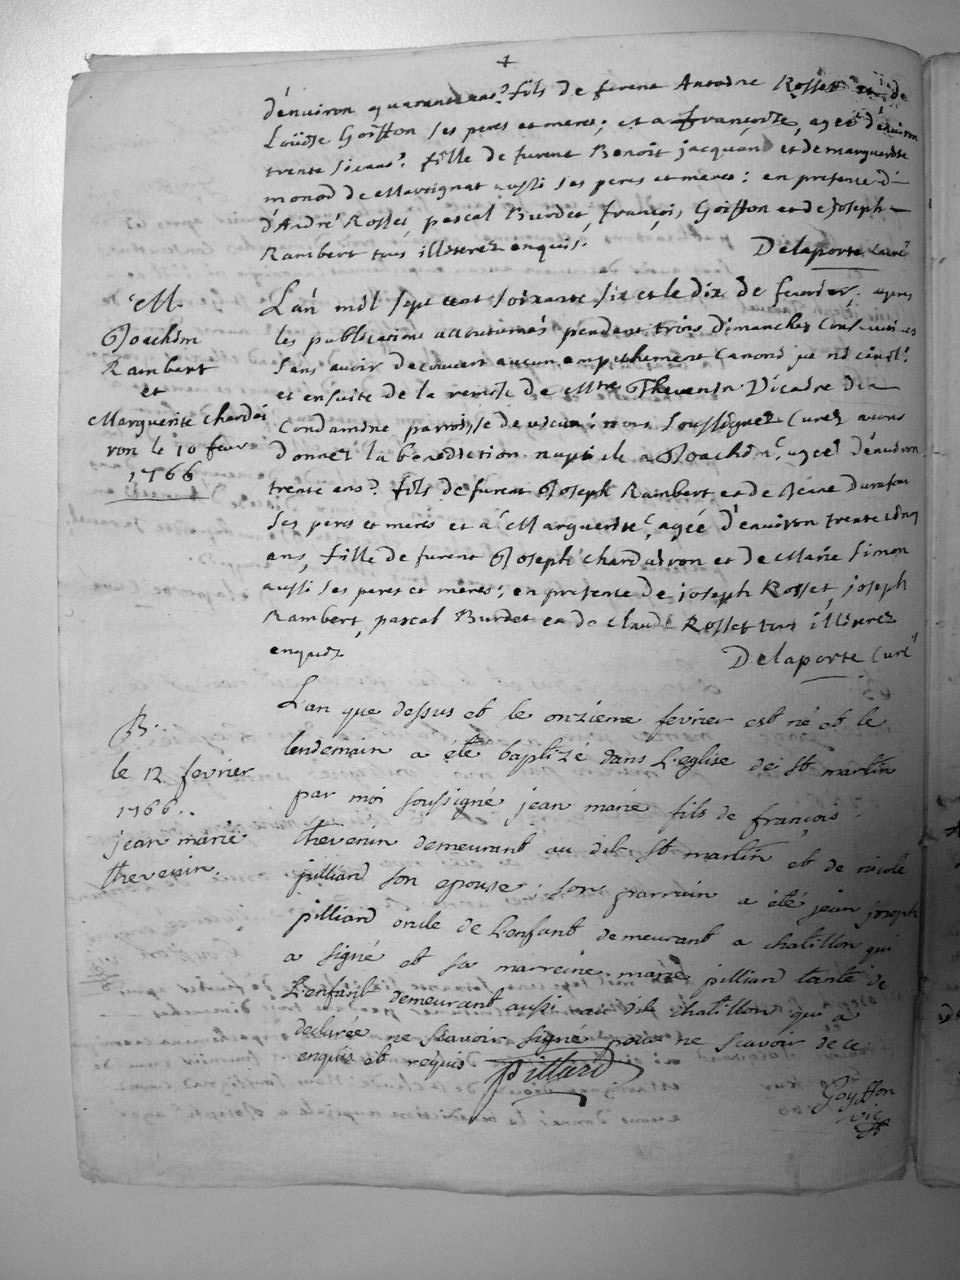 d'environ quarante ans? fils de furent Antoine Rosset et de
Loüise Goiffon ses peres et meres; et a francoise, agée d'environ
trente six ans?. fille de furent Benoît jacquand et de marguerite
monod de Martignat aussi ses peres et meres: en presence d'
d'André Rosset, pascal Burdet, françois Goiffon et de Joseph
Rambert tous illiterez enquis.
Delaporte Curé
M.
Joachim
Rambert
et
Marguerite chardei
ron le 10 fevr
1766
L'an mil sept cent soixante six et le dix de fevrier, après
les publications accoutumés pendant trois dimanches consecutives
sans avoir decouvert aucun empechement canoni que ni civil?
et ensuite de la remise de Mtre Thevenin Vicaire de la
Condamine parroisse de nous soussignez Curez avons
donnez la benediction nuptiale a Joachim, agée d'environ
trente ans? fils de furent Joseph Rambert et de Reine Durafour
ses peres et meres et a Marguerite, agée d'environ trente cinq
ans, fille de furent Joseph chardeiron et de Marie Simon
aussi ses peres et meres; en presence de joseph Rosset, joseph
Rambert, pascal Burdet et de claude Rosset tous illiterez
enquis
Delaporte Curé
B.
le 12 fevrier
1766.
jean marie
thevenin.
L'an que dessus et le onzieme fevrier est né et le
lendemain a été baptizé dans L'eglise de st martin
par moi soussigné jean marie fils de françois
thevenin demeurant au dit st martin et de nicole
pilliard son epouse; son parrain a été jean joseph
pilliard oncle de L'enfant demeurant a chatillon qui
a signé et sa marreine marie pilliard tante de
L'enfant demeurant aussi au dit chatillon qui a
declarée ne sçavoir signé pour ne scavoir de ce
enquis et requis pilliard
Goyffon
vic